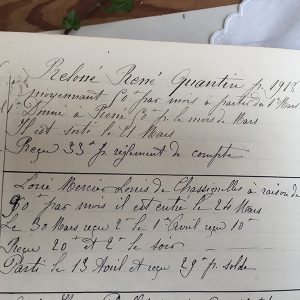 René Quantin p. 1918
moyennant 60 par mois à partir du 1er Mars
Donné à René 60 p. le mois de Mars
Il est sorti le 21 Mars
Reçu 33 p. règlement de compte
Loué Mercier Louis de Chassignelles à raison de
90 par mois il est entré le 24 Mars
Le 30 Mars reçu 2 le 1er Avril reçu 10
Reçu 20 et 2 le soir
Parti le 13 Avril et reçu 29 p. solde